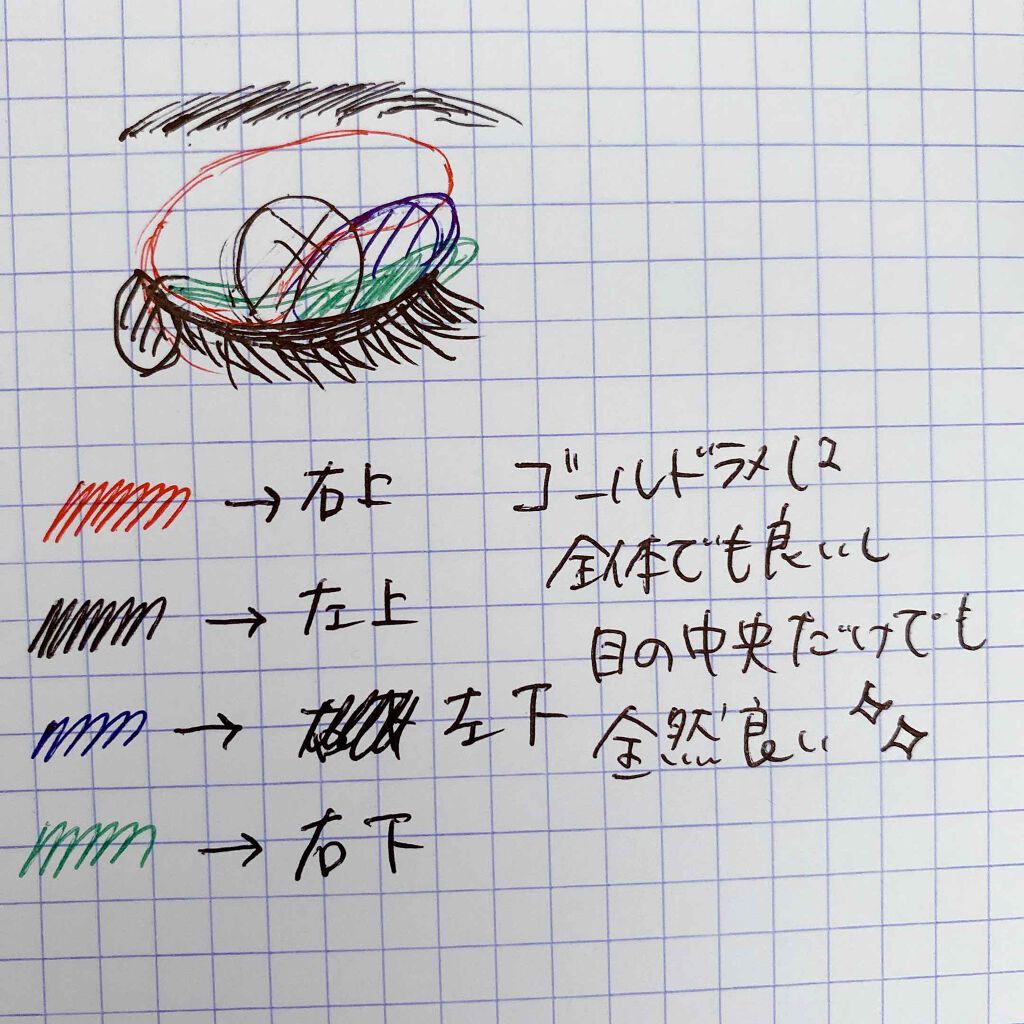 → 右上
→ 左上
→ 左下
→ 右下
ゴールドラメは
全体でも良いし
目の中央だけでも
全然良い